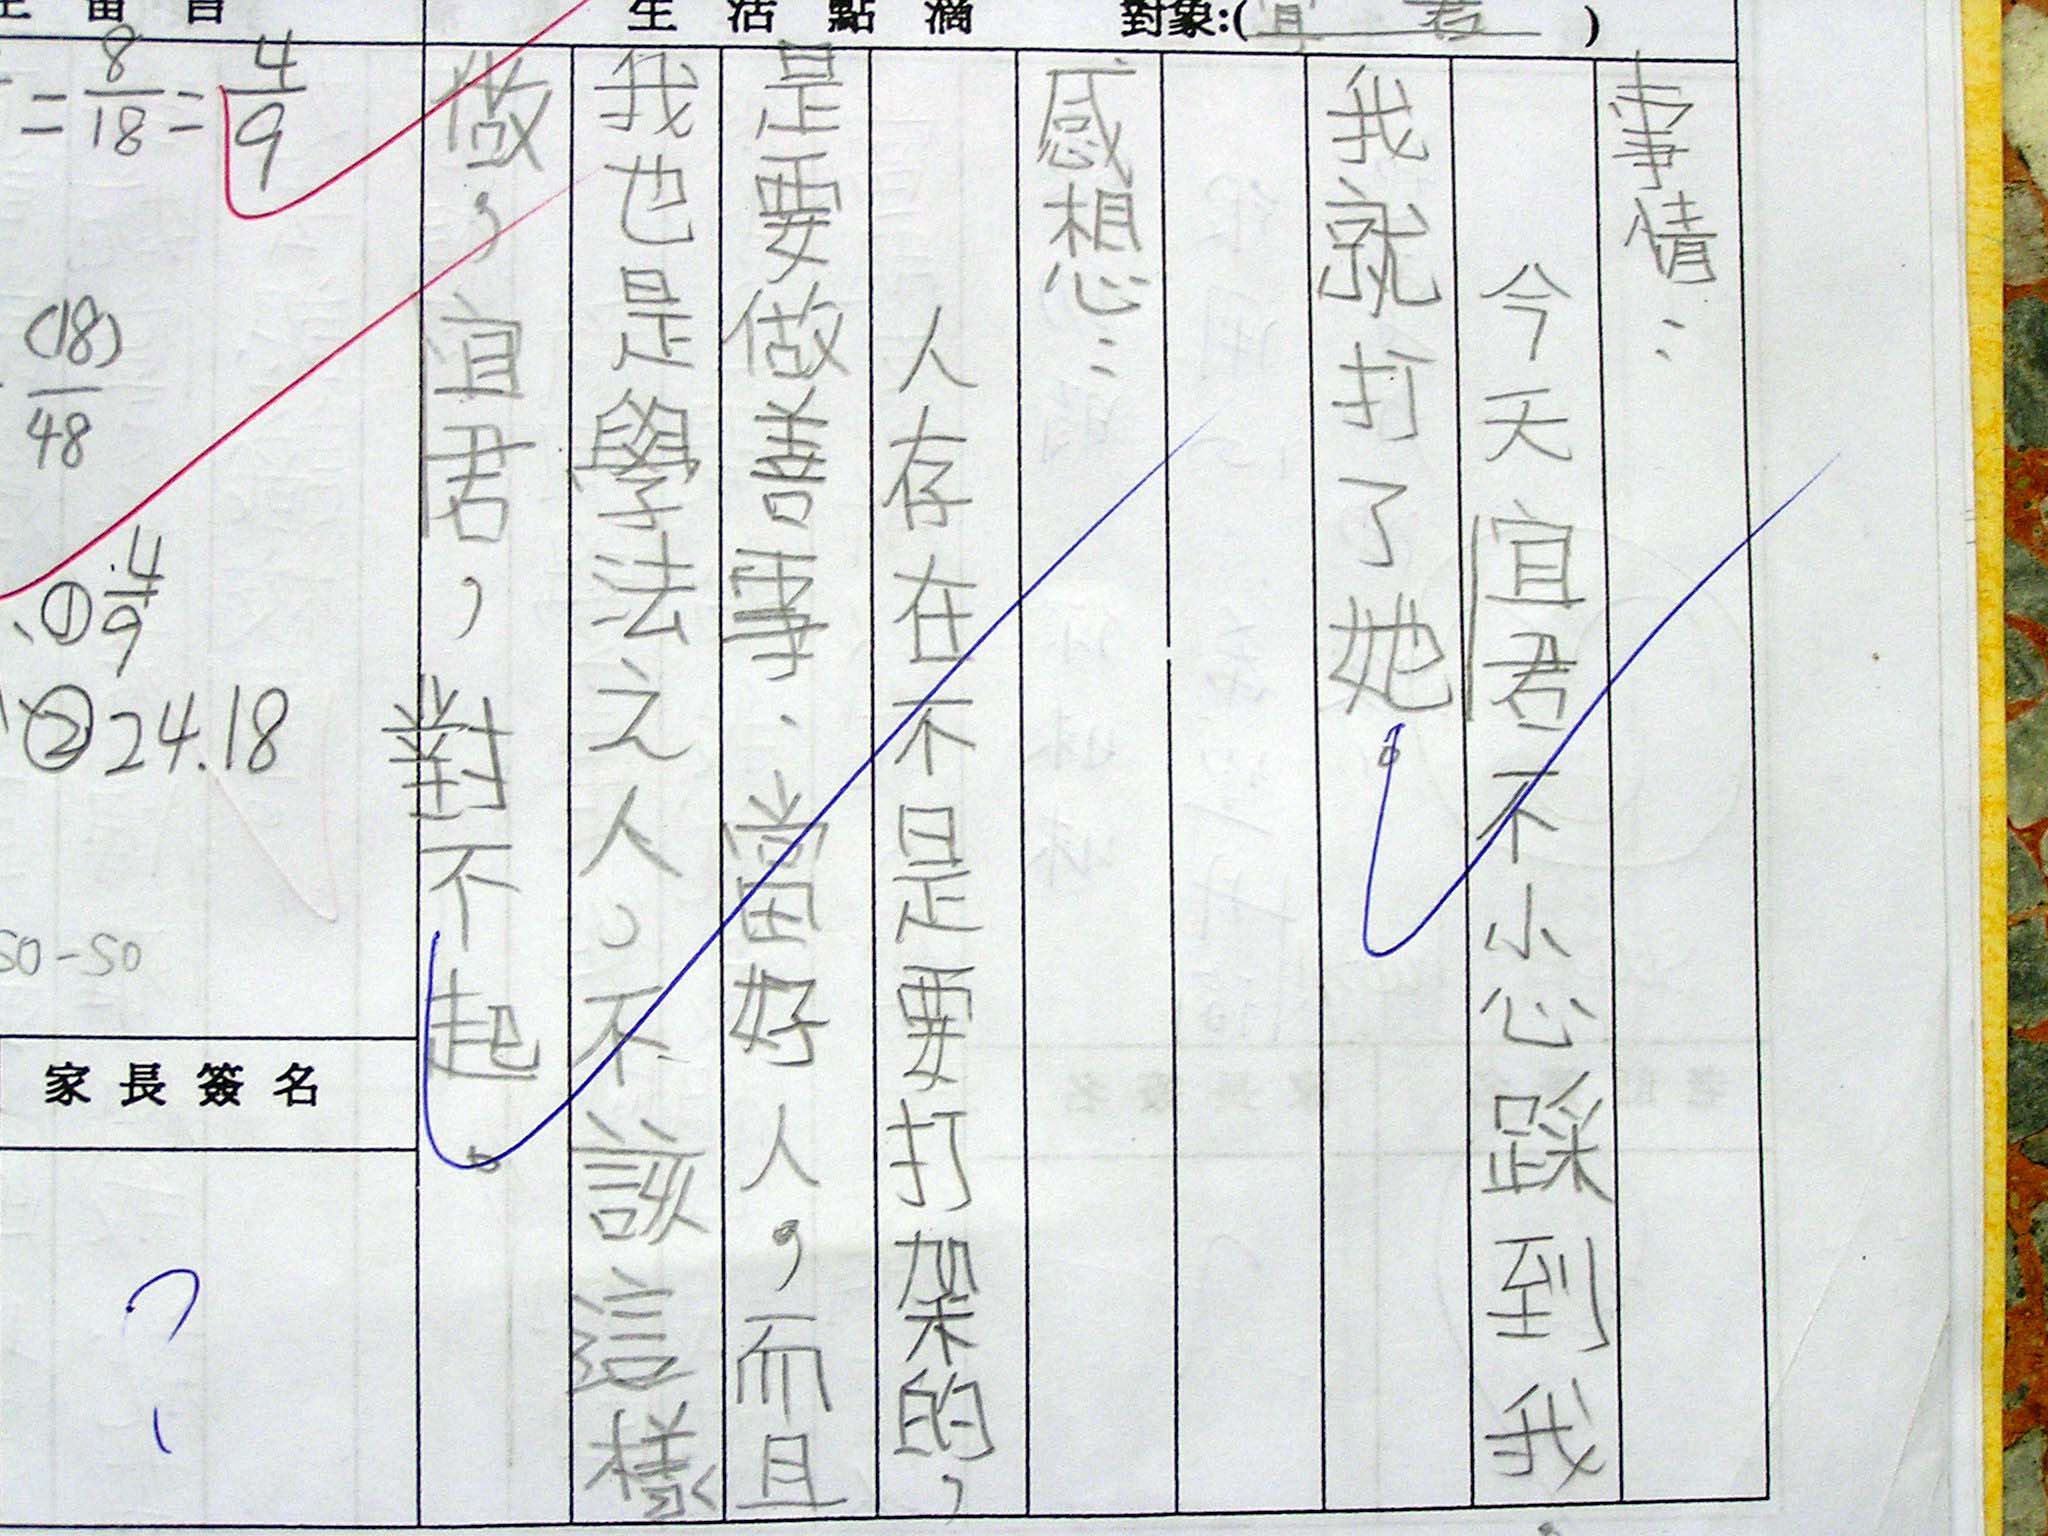 生活點滴 對象:(宜君)
事情：
今天宜君不小心踩到我，
我就打了她。
感想：
人存在不是要打架的，
是要做善事、當好人，而且
我也是學法之人。不該這樣
做，宜君，對不起。
留言
= 8/18 = 4/9
(18)/48
①4/9
②24.18
50-50
家長簽名
?